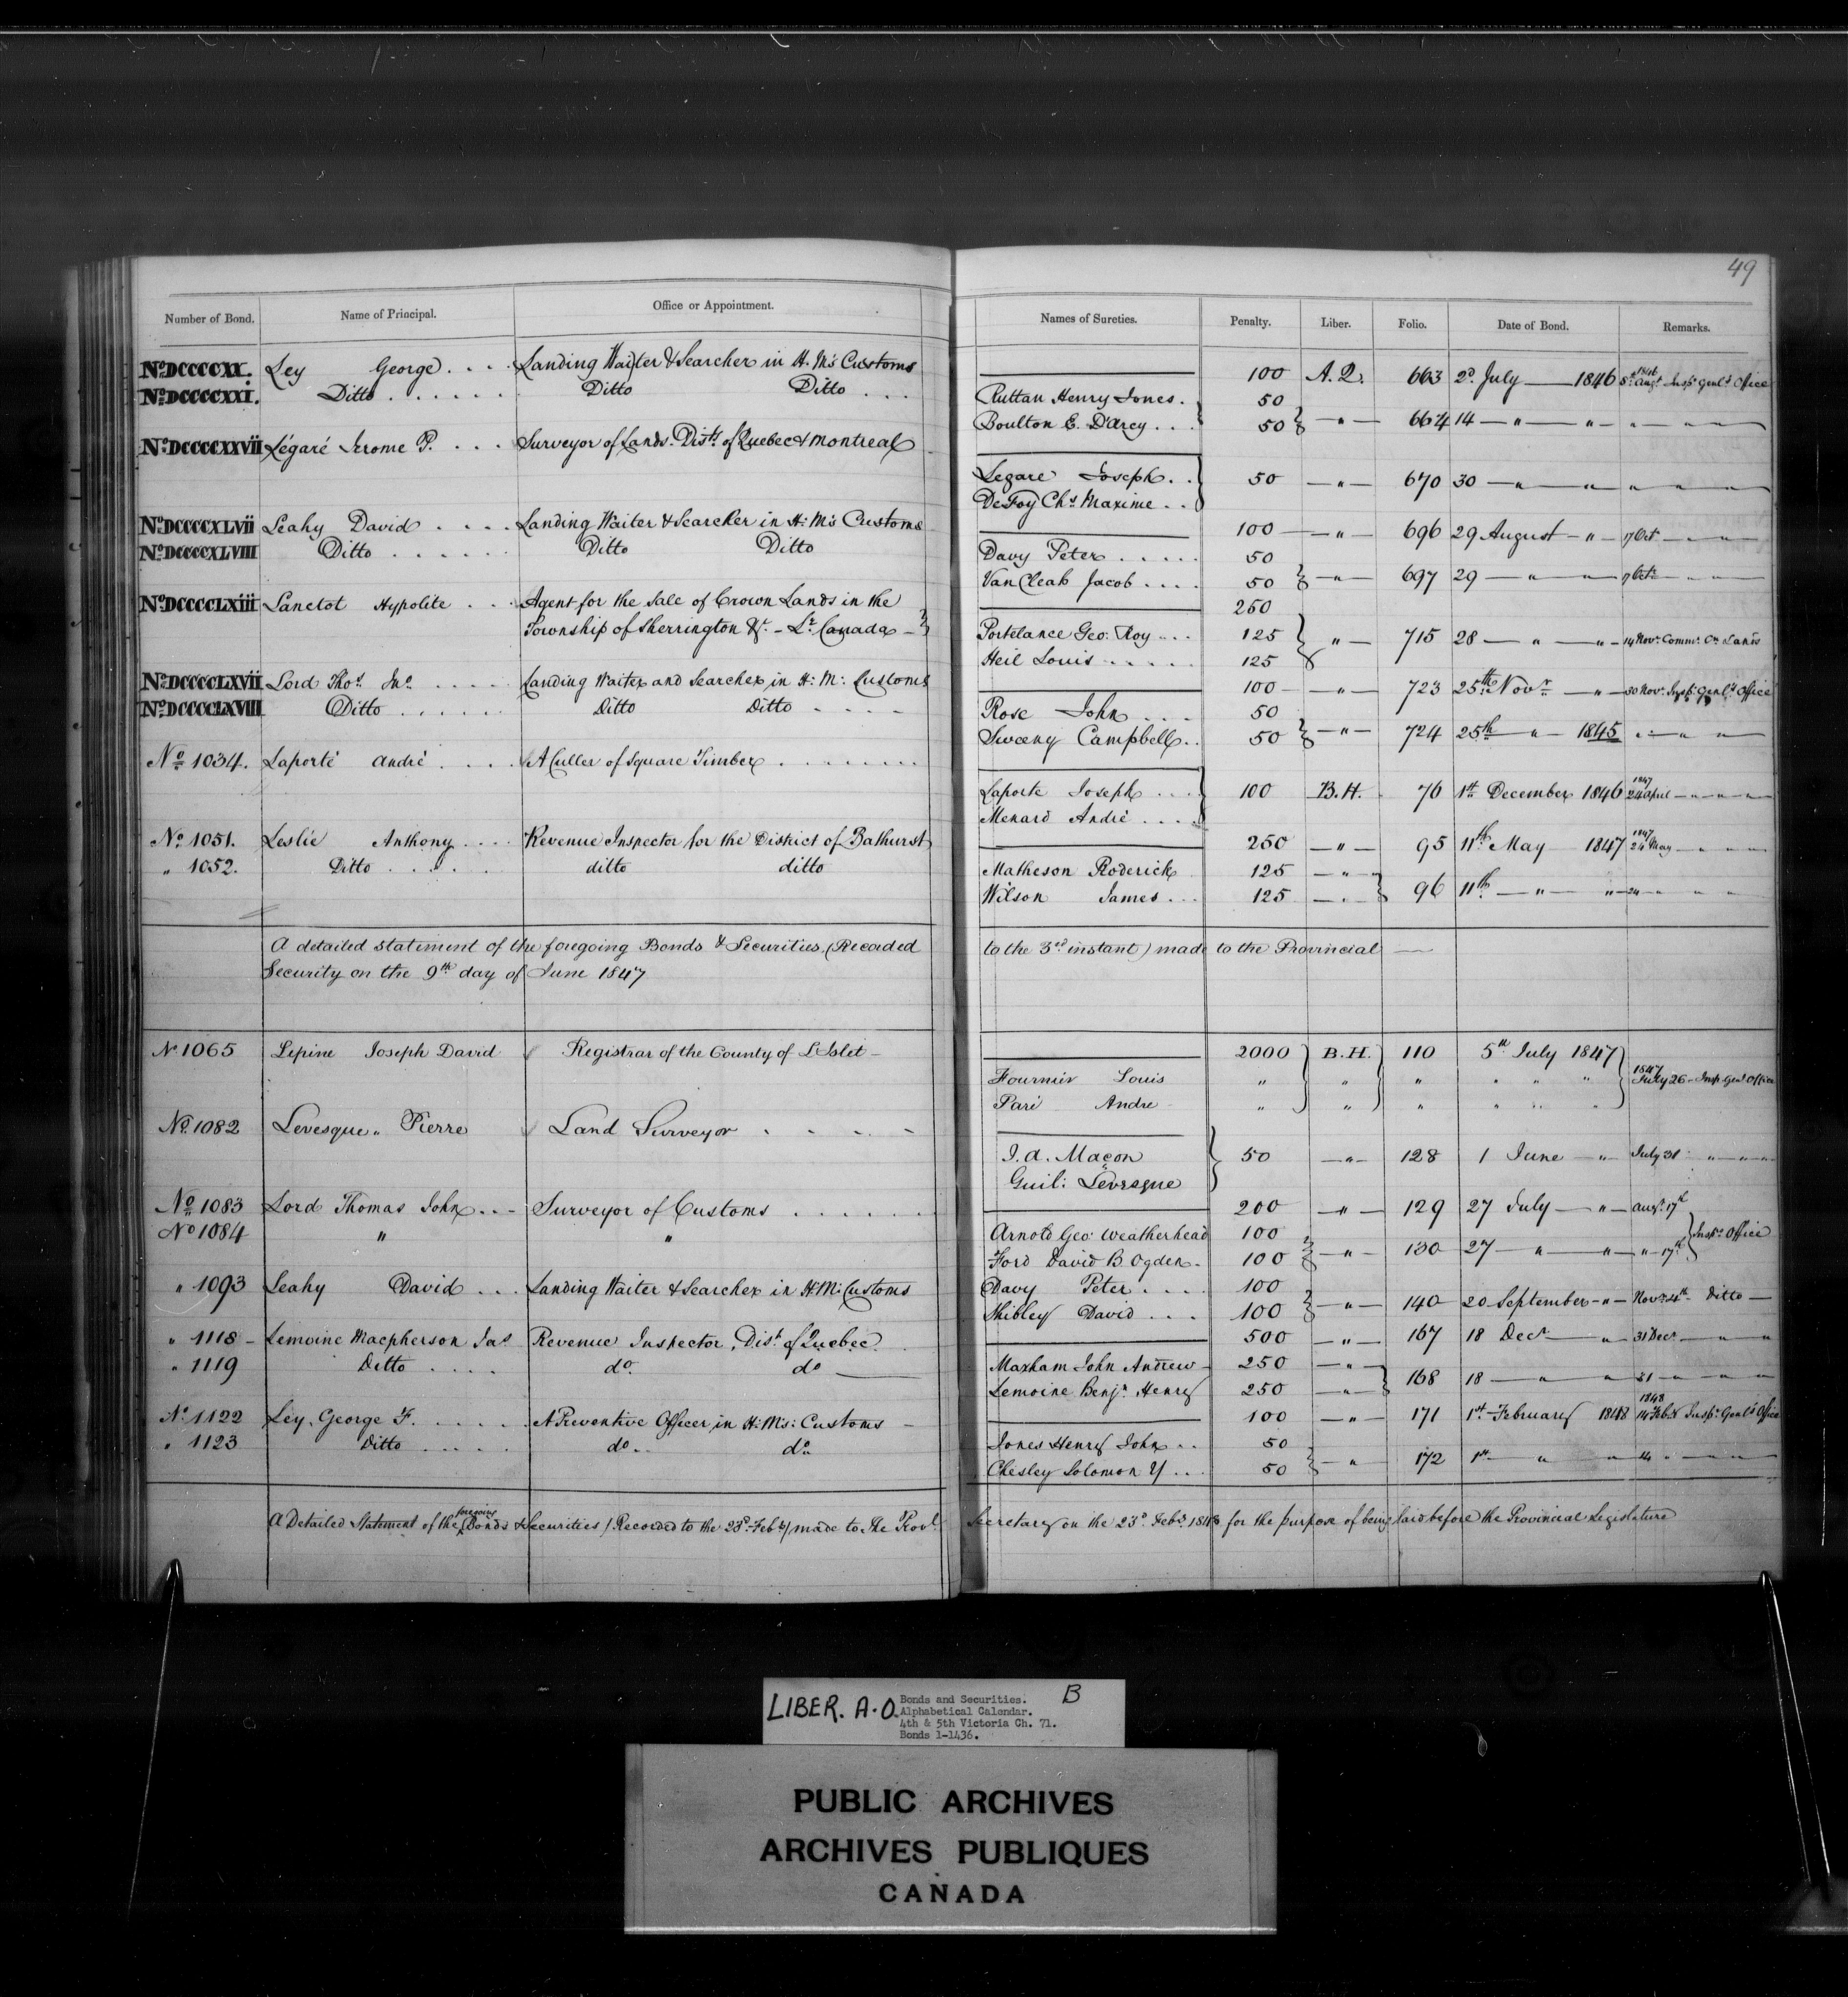 49
Number of Bond. Name of Principal. Office or Appointment. Names of Sureties. Penalty. Liber. Folio. Date of Bond. Remarks.
No. DCCCCXX. Ley George . . . . Landing Waiter & Searcher in H. M's Customs 100 A. Q. 663 2d. July — 1846 1846 Augt. Inspr. Genl's Office
No. DCCCCXXI. Ditto . . . . . . Ditto Ditto . . . Ruttan Henry Jones . 50
Boulton E. D'Arcy . . . 50 } — " — 664 14 — " — " — " — " — " —
No. DCCCCXXVII Légaré Jerome P. . . . Surveyor of Lands. Dists. of Quebec & Montreal
Legare Joseph . . 50 — " — 670 30 — " — " — " — " — " —
DeFoy Chs. Maxime . . }
No. DCCCCXLVII Leahy David . . . . Landing Waiter & Searcher in H. M's Customs 100 — " — 696 29 August — " — 7 Oct — " — " —
No. DCCCCXLVIII Ditto . . . . . . Ditto Ditto Davy Peter . . . . . 50
VanCleak Jacob . . . . 50 } — " — 697 29 — " — " — 7 Oct. — " — " —
No. DCCCCLXIII Lanctot Hypolite . . . Agent for the Sale of Crown Lands in the 250
Township of Sherrington &c. – Lr. Canada – } Portelance Geo: Roy . . . 125 } " — 715 28 — " — " — 14 Novr. Commr. Cn. Lands
Heil Louis . . . . . 125
No. DCCCCLXVII Lord Thos. Jno. . . . . . Landing Waiter and Searcher in H: M: Customs 100 — " — 723 25th. Novr. — " — 30 Novr. Inspr. Genl's Office
No. DCCCCLXVIII Ditto . . . . . . Ditto Ditto . . . . Rose John . . . . 50
Sweeny Campbell . . 50 } — " — 724 25th — " — 1845 " — " — " —
No. 1034. Laporté André . . . . A Culler of Square Timber . . . . . . . .
Laporte Joseph . . . 100 B. H. 76 1st. December 1846 1847 24 April — " — " —
Menard André . . . . }
No. 1051. Leslie Anthony . . . . Revenue Inspector for the District of Bathurst 250 — " — 95 11th May 1847 1847 24 May — " — " —
" 1052. Ditto . . . . . ditto ditto Matheson Roderick 125 — " —
Wilson James . . . 125 — " — } 96 11th. — " — " — 24 " " "
A detailed statement of the foregoing Bonds & Securities, (Recorded to the 3rd instant) made to the Provincial —
Security on the 9th day of June 1847
No 1065 Lepine Joseph David Registrar of the County of L'Islet – 2000 B. H. 110 5th July 1847
Fournier Louis " " " " " " 1847 July 26 – Insp. Genl Office
Paré Andre " " " " " "
No. 1082 Levesque „ Pierre Land Surveyor . . . .
J. A. Maçon 50 — " — 128 1 June — " — July 31 " — " — " —
Guil: Levesque }
No. 1083 Lord Thomas John . . . Surveyor of Customs . . . . . . . 200 — " — 129 27 July — " — Augt. 17th
No 1084 " " Arnold Geo: Weatherhead 100
Ford David B. Ogden . 100 } — " — 130 27 — " — " — " — 17th } Insp. Office
" 1093 Leahy David . . . Landing Waiter & Searcher in H: M: Customs Davy Peter . . . . 100
Shibley David . . . 100 } — " — 140 20 September – " – Novr. 4th – Ditto —
" 1118 – Lemoine Macpherson Jas. Revenue Inspector, Dist. of Quebec 500 — " — 167 18 Decr — " 31 Decr. — " — "
" 1119 Ditto . . . . do. do — Maxham John Andrew 250 — " —
Lemoine Benjn. Henry 250 — " — } 168 18 — " — " 31 — " — " — "
No. 1122 Ley, George F. . . . . . A Preventive Officer in H: M's: Customs – 100 — " — 171 1st. February 1848 1848 14 Feby Inspr. Genl's Office
" 1123 Ditto . . . . . do . . do. Jones Henry John . . 50
Chesley Solomon Y . . . 50 } — " — 172 1st — " — " 14 " — " — "
A Detailed Statement of the foregoing Bonds & Securities (Recorded to the 23d. Feby) made to The Provl. Secretary on the 23d. Feby. 1848 for the purpose of being laid before the Provincial Legislature
LIBER. A.O. B
Bonds and Securities.
Alphabetical Calendar.
4th & 5th Victoria Ch. 71.
Bonds 1-1436.
PUBLIC ARCHIVES
ARCHIVES PUBLIQUES
CANADA